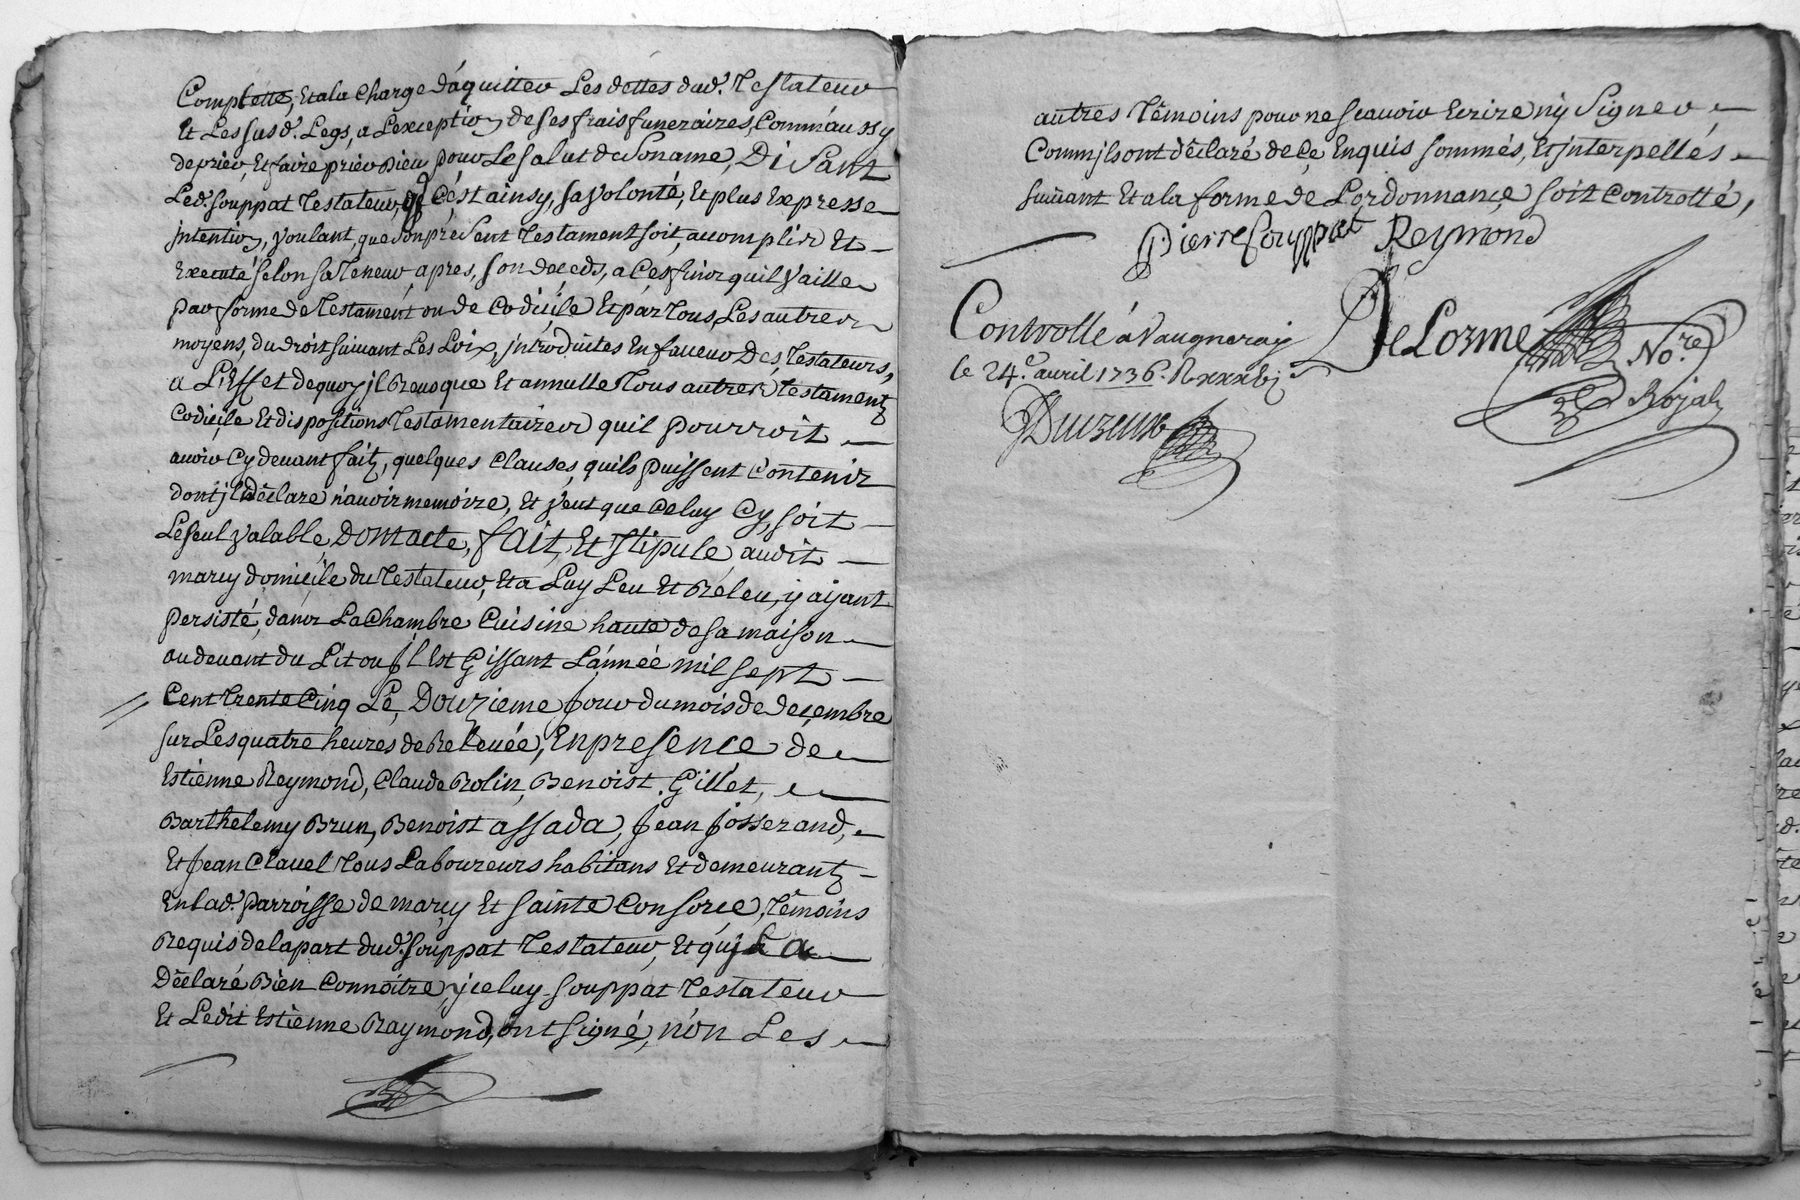 Complette, Et a la Charge d'aquitter Les dettes dud. Testateur
Et Les susd. Legs, a L'exception de ses frais funeraires, Comm'aussy
de prier, Et faire prier Dieu pour Le salut de Son ame, Disant
Led. Souppat Testateur, q C'est ainsy, sa volonté, Et plus Expresse
jntention, voulant, que Son present Testament soit, accomplir Et
Executé selon sa Teneur, apres, son deceds, a Ces fins quil vaille
par forme de Testament ou de Codicile Et par Tous, Les autres
moyens, du droit suivant Les Loix, jntroduites En faveur Des Testateurs,
a L'Effet dequoy jl Revoque Et annulle Tous autres Testamentz
Codicile Et dispositions Testamentaires quil pourroit
avoir Cy devant faitz, quelques Clauses, quils puissent Contenir
dont jl declare n'avoir memoire, Et veut que Celuy Cy, soit
Le seul valable, Dont acte, fait, Et Stipulé, audit
marcy domicile du Testateur, Et a Luy Leu Et Releu, y ayant
persisté, dans La Chambre Cuisine haute de sa maison
au devant du Lit ou jl Est Gissant L'année mil sept
Cent Trente Cinq Le, Douzieme jour du mois de decembre
sur Les quatre heures de Relevée, En presence de
Estienne Reymond, Claude Rolin, Benoist Gillet,
Barthelemy Brun, Benoist assada, Jean Josserand,
Et Jean Clavel Tous Laboureurs habitans Et demeurantz
En lad. parroisse de marcy Et Sainte Consorce, Témoins
Requis de la part dud. Souppat Testateur, Et quj La
Déclaré Bien Connoitre, jceluy Souppat Testateur
Et Ledit Estienne Raymond, ont signé, non Les
autres Témoins pour ne scavoir Ecrire ny Signer
Comm jls ont déclaré de Ce Enquis sommés, Et jnterpellés
suivant Et a la forme de L'ordonnance soit Controllé,
Pierre Souppat Reymond
DeLorme
No.re
Royal
Controllé á Vaugneray
le 24.e avril 1736. R xxxbj s
Duizeux